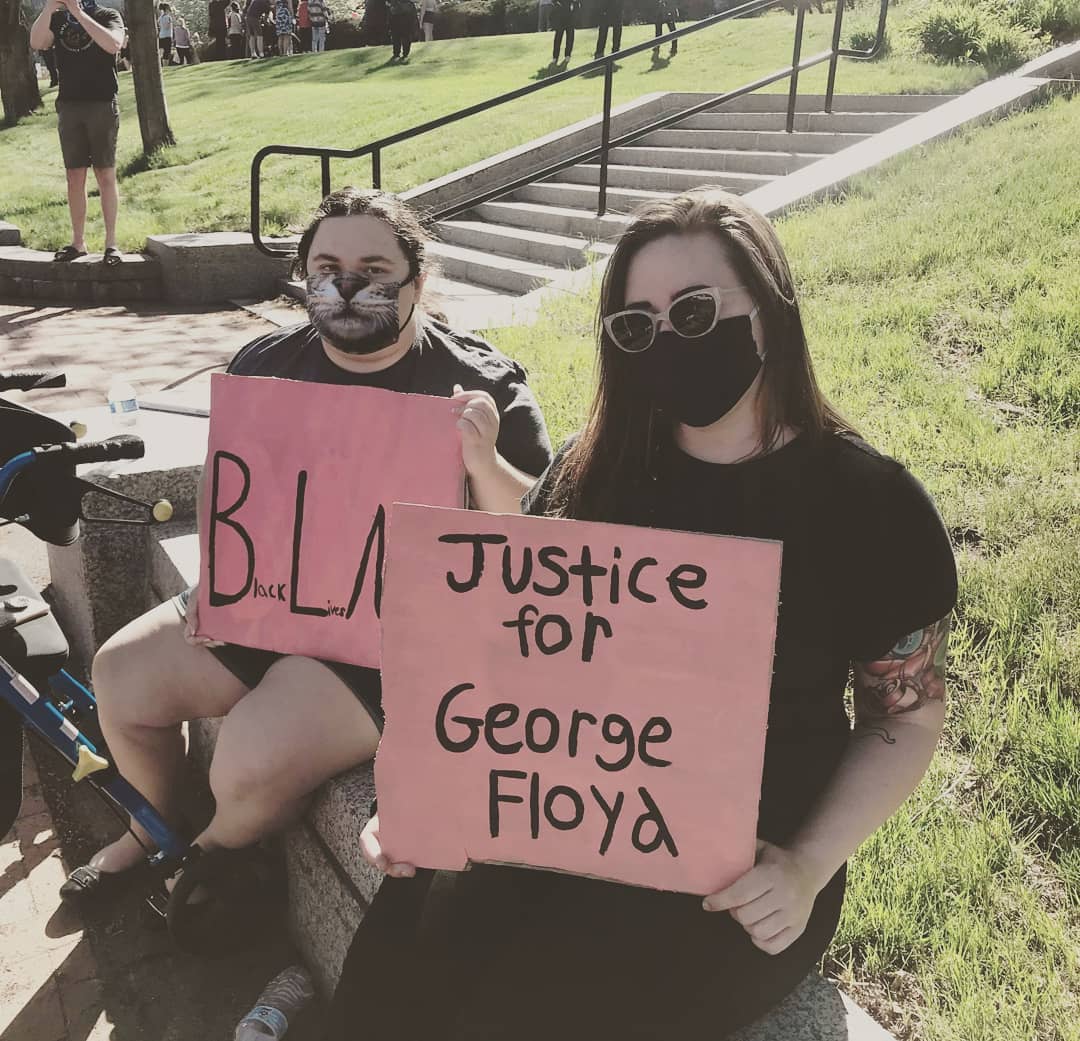 BLM
Black Lives
Justice
for
George
Floyd